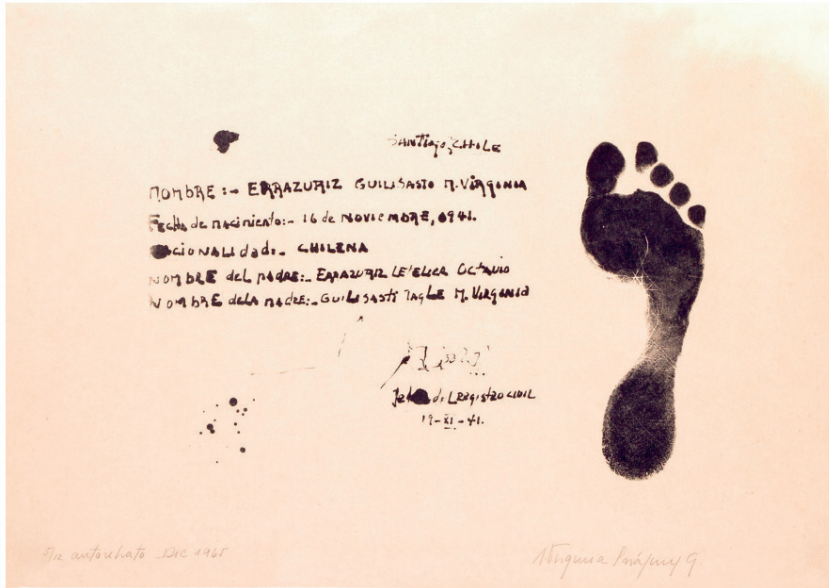 SANTIAGO, CHILE
NOMBRE :- ERRAZURIZ GUILISASTO M. VIRGINIA
Fecha de nacimiento:- 16 de NOVIEMBRE, 1941.
NACIONALIdad:- CHILENA
NOMBRE del padre:- ERRAZURIZ LETELIER OCTAVIO
NOMBRE de la madre:- GUILISASTI TAGLE M. VIRGINIA
del REgistro CIVIL
19-XI-41.
5/12 autorretrato Dic 1965
Virginia Errázuriz G.